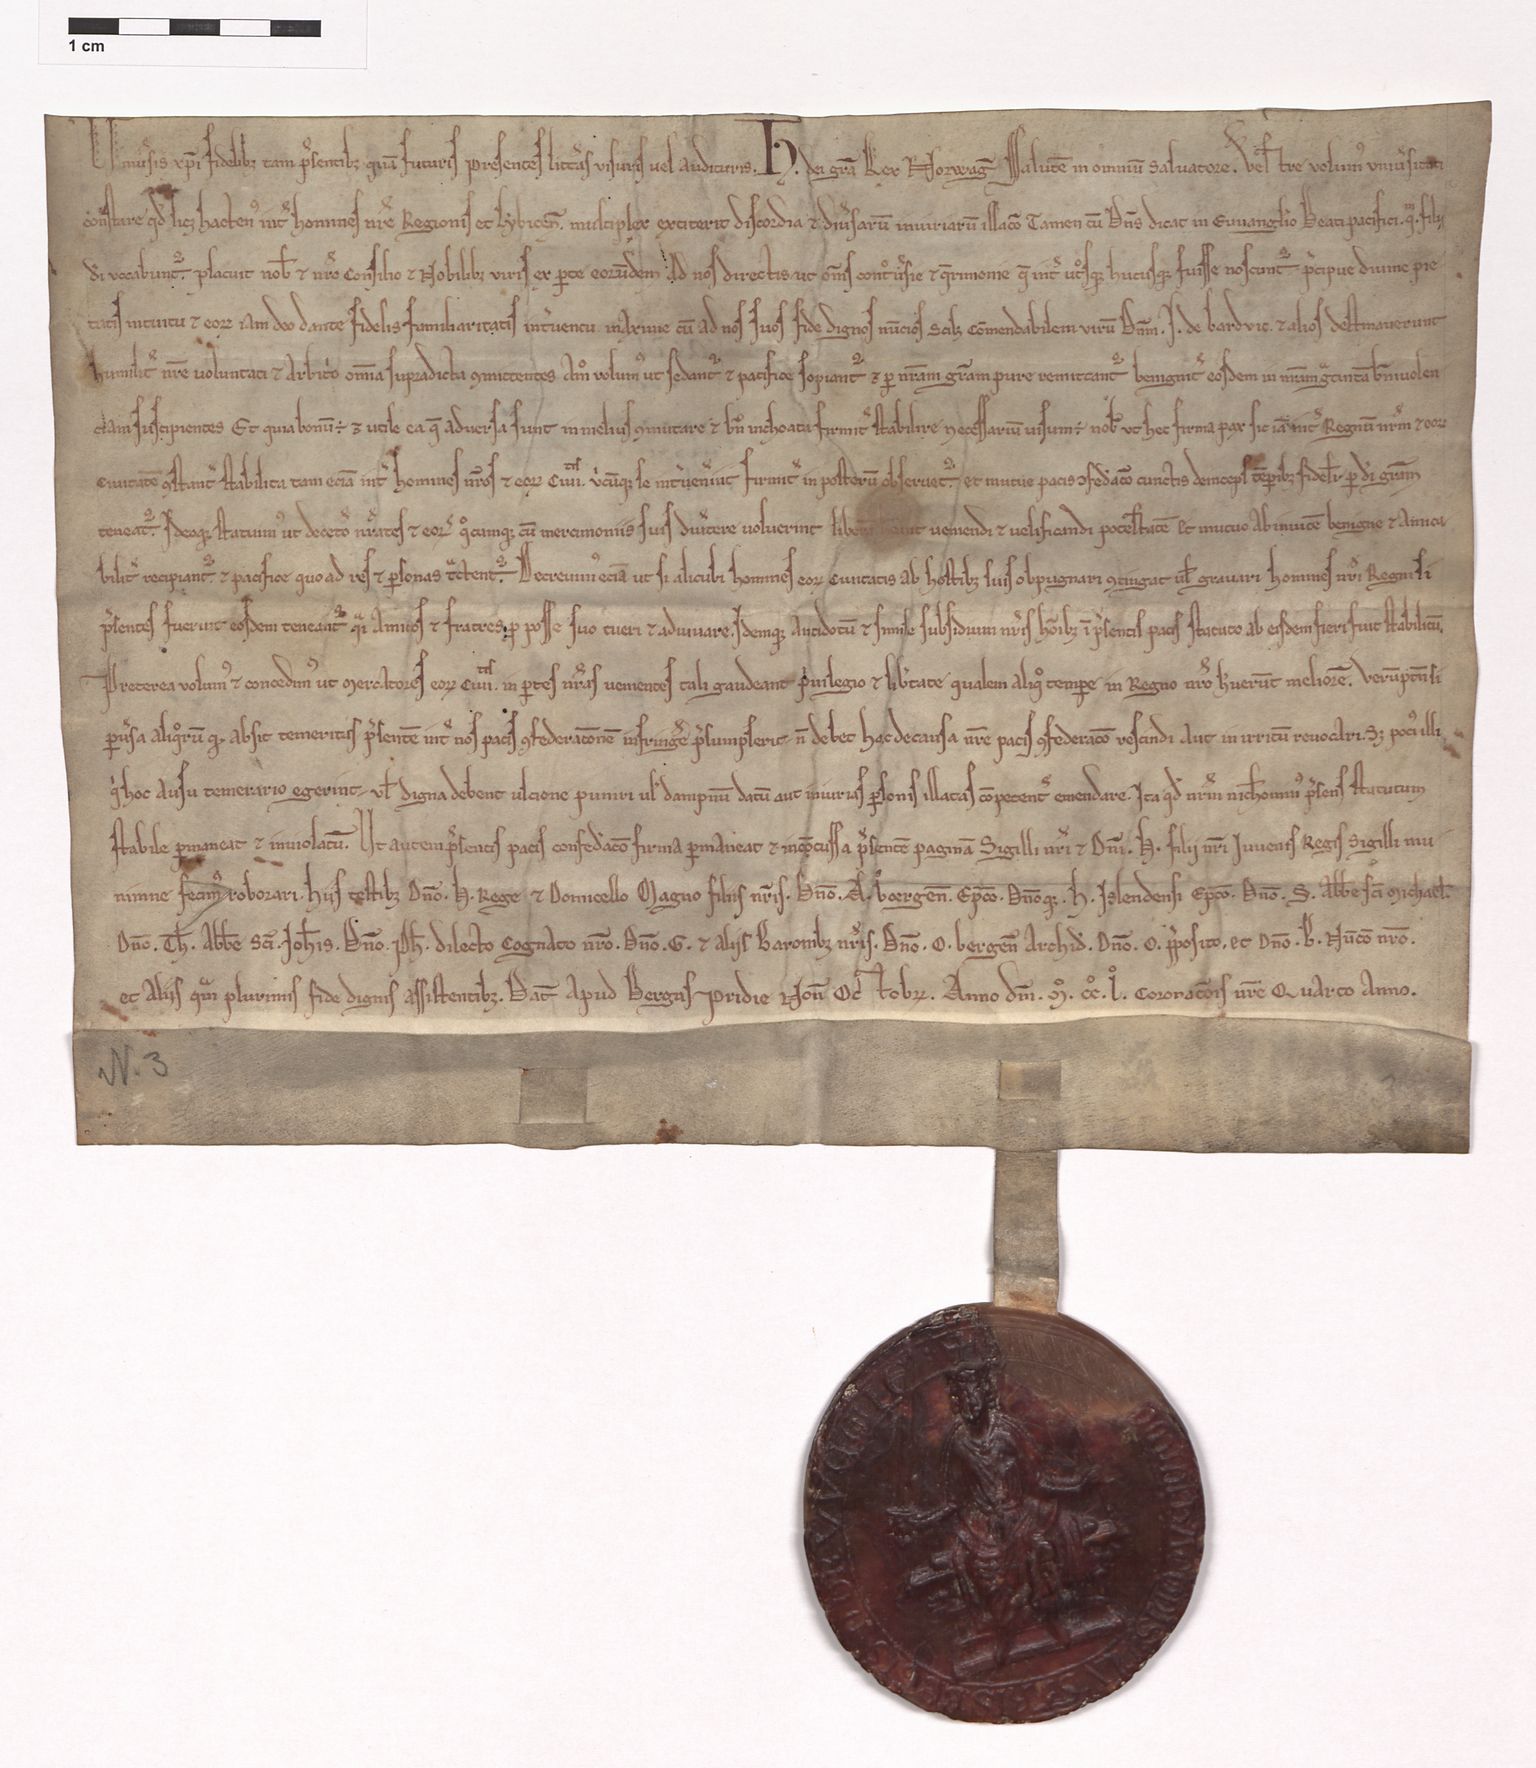 1 cm
Uniũsis xp̄i fidelibꝫ tam p̃sentibꝫ quã futuris presentes litt̃as uisuris uel audituris. H. dei gr̃a Rex Norwag̃ Salutẽ in omniũ saluatore. Vest̃re volumꝰ vniũsitati
cõstare qd̃ licꝫ hactenꝰ int̃ homines nr̃e Regionis et Lybicen̄. multiplex extiterit discordia ⁊ diũsarũ iniuriarũ illac̃o Tamen cũ Dñs dicat in Euuangelio Beati pacifici. qm̃. filij
dī vocabunt᷑. placuit nob̃ ⁊ nr̃o Consilio ⁊ Nobilibꝫ viris ex ꝑte eorũdem Ad nos directis ut om̃s cont̃ũsie ⁊ q̃rimonie q̃ int̃ ut̃osqꝫ hucusqꝫ fuisse noscunt᷑ p̃cipue diuine pie
tatis intuitu ⁊ eoꝝ iam deo dante fidelis familiaritatis int̃uentu. maxime cũ ad nos suos fide dignos nũcios scilꝫ Cõmendabilem virũ Dñm. J. de bardvic. ⁊ alios destinauerunt
humilit̃ nr̃e uoluntati ⁊ Arbit̃o om̃ia supradicta ꝯmittentes Am̊ volumꝰ ut sedant᷑ ⁊ pacifice sopiant᷑ ⁊ ꝑ nr̃am gr̃am pure remittant᷑ benignit̃ eosdem in nr̃am bñiuolen
ciam suscipientes Et quia bonũ ÷ ⁊ utile ea q̃ aduersa sunt in melius ꝯmutare ⁊ bñ inchoata firmit̃ stabilire necessariũ uisum ÷ nob̃ vt hec firma pax sic int̃ Regnũ nr̃m ⁊ eoꝝ
Ciuitatẽ ꝯstant̃ stabilita tam eciã int̃ homines nr̃os ⁊ eoꝝ Ciui.tis v̉cũqꝫ se int̃uen̉int firmit̃ in posterũ obseruet᷑ et mutue pacis ꝯfed̃ac̃o cunctis deinceps tẽꝑibꝫ fidelit̃ ꝑ dī gr̃am
teneat᷑. Ideoqꝫ statuimꝰ ut decet̃o nr̃ates ⁊ eoꝝ qͦcumqꝫ cũ mercimoniis suis diũtere uoluerint liberã hẽant ueniendi ⁊ uelificandi potestatẽ Et mutuo ab inuicẽ benigne ⁊ amica
bilit̃ recipiant᷑ ⁊ pacifice quo ad res ⁊ ꝑsonas t̃ctent᷑. Decreuimꝰ eciã ut si alicubi homines eoꝝ Ciuitatis ab hostibꝫ suis obpugnari ꝯtingat ul̃ grauari homines nr̃i Regni si
p̃sentes fuerint eosdem teneant᷑ q̃i Amicos ⁊ fratres ꝓ posse suo tueri ⁊ adiuuare. Idemqꝫ antidotũ ⁊ simile subsidium nr̃is hõibꝫ ĩ p̃sentis pacis statuto ab eisdem fieri fuit stabilitũ.
Preterea volumꝰ ⁊ concedimꝰ ut Mercatores eoꝝ Ciui.tis in ꝑtes nr̃as uenientes tali gaudeant p̉uilegio ⁊ lib̃tate qualem aliqͦ tempe in Regno nr̃o h̃uerũt meliorẽ. Verũptñ si
ꝑũsa aliqͦrũ qͦ. absit temeritas p̃sentẽ int̃ nos pacis ꝯfederatonẽ infring̃e p̃sumpserit. ñ debet hac de causa nr̃e pacis ꝯfederac̃o rescindi Aut in irritũ reuocari. Sꝫ pocꝰ illi
q̉ hoc Ausu temerario egerint ul̃ digna debent ulcione puniri ul̃ dampnũ datũ aut iniurias ꝑsonis illatas cõpetent̃ emendare. Ita qd̃ nr̃m nichominꝰ p̃sens statutum
stabile ꝑmaneat ⁊ inuiolatũ. Ut autem p̃sentis pacis confed̃ac̃o firma ꝑmaneat ⁊ incõcussa p̃sentẽ paginã Sigilli nr̃i ⁊ Dñi. H. filij nr̃i Juuenis Regis Sigilli mu
nimine fecimꝰ roborari. Hiis testibꝫ Dño. H. Rege ⁊ Domicello Magno filiis nr̃is. Dño. A. bergeñ. Ep̃co. Dñoqꝫ. H. Islendensi Ep̃co. Dño. S. Abb̃e sc̃i Michael̃.
Dño. Th̃. Abb̃e Sc̃i. Joh̃is. Dño. Ph̃. dilecto Cognato nr̃o. Dño. G. ⁊ aliis Baronibꝫ nr̃is. Dño. O. bergeñ Archid̃. Dño. O. p̃posito. et Dño. B. Nũc̃o nr̃o.
et Aliis qũ plurimis fide dignis assistentibꝫ. Dat̃ Apud Bergis Pridie Noñ Octobꝝ. Anno Dñi. M. cͦc. lͦ. Coronac̃ois nr̃e Quarto Anno.
N. 3